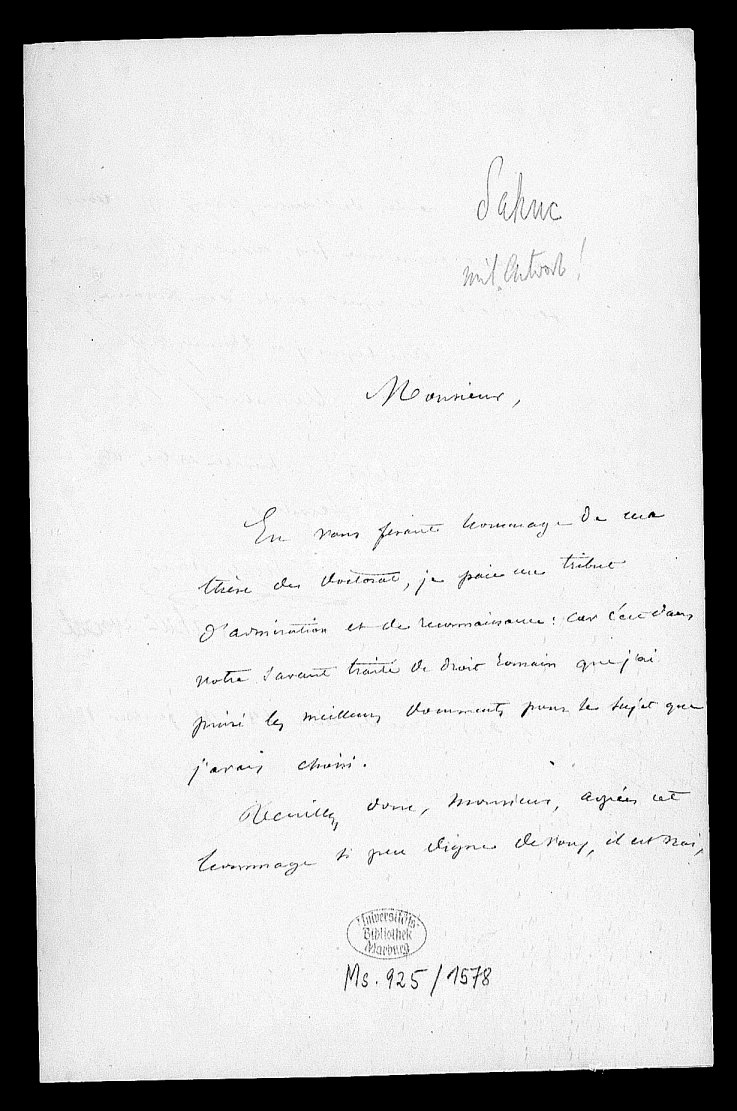 Sahuc
mit Antwort!
Monsieur,
En vous faisant hommage de ma
thèse de doctorat, je paie un tribut
d'admiration et de reconnaissance: car c'est dans
votre savant traité de droit romain que j'ai
puisé les meilleurs documents pour le sujet que
j'avais choisi.
Veuillez donc, monsieur, agréer cet
hommage si peu digne de vous, il est vrai,
Universitäts-
Bibliothek
Marburg
Ms. 925/1578